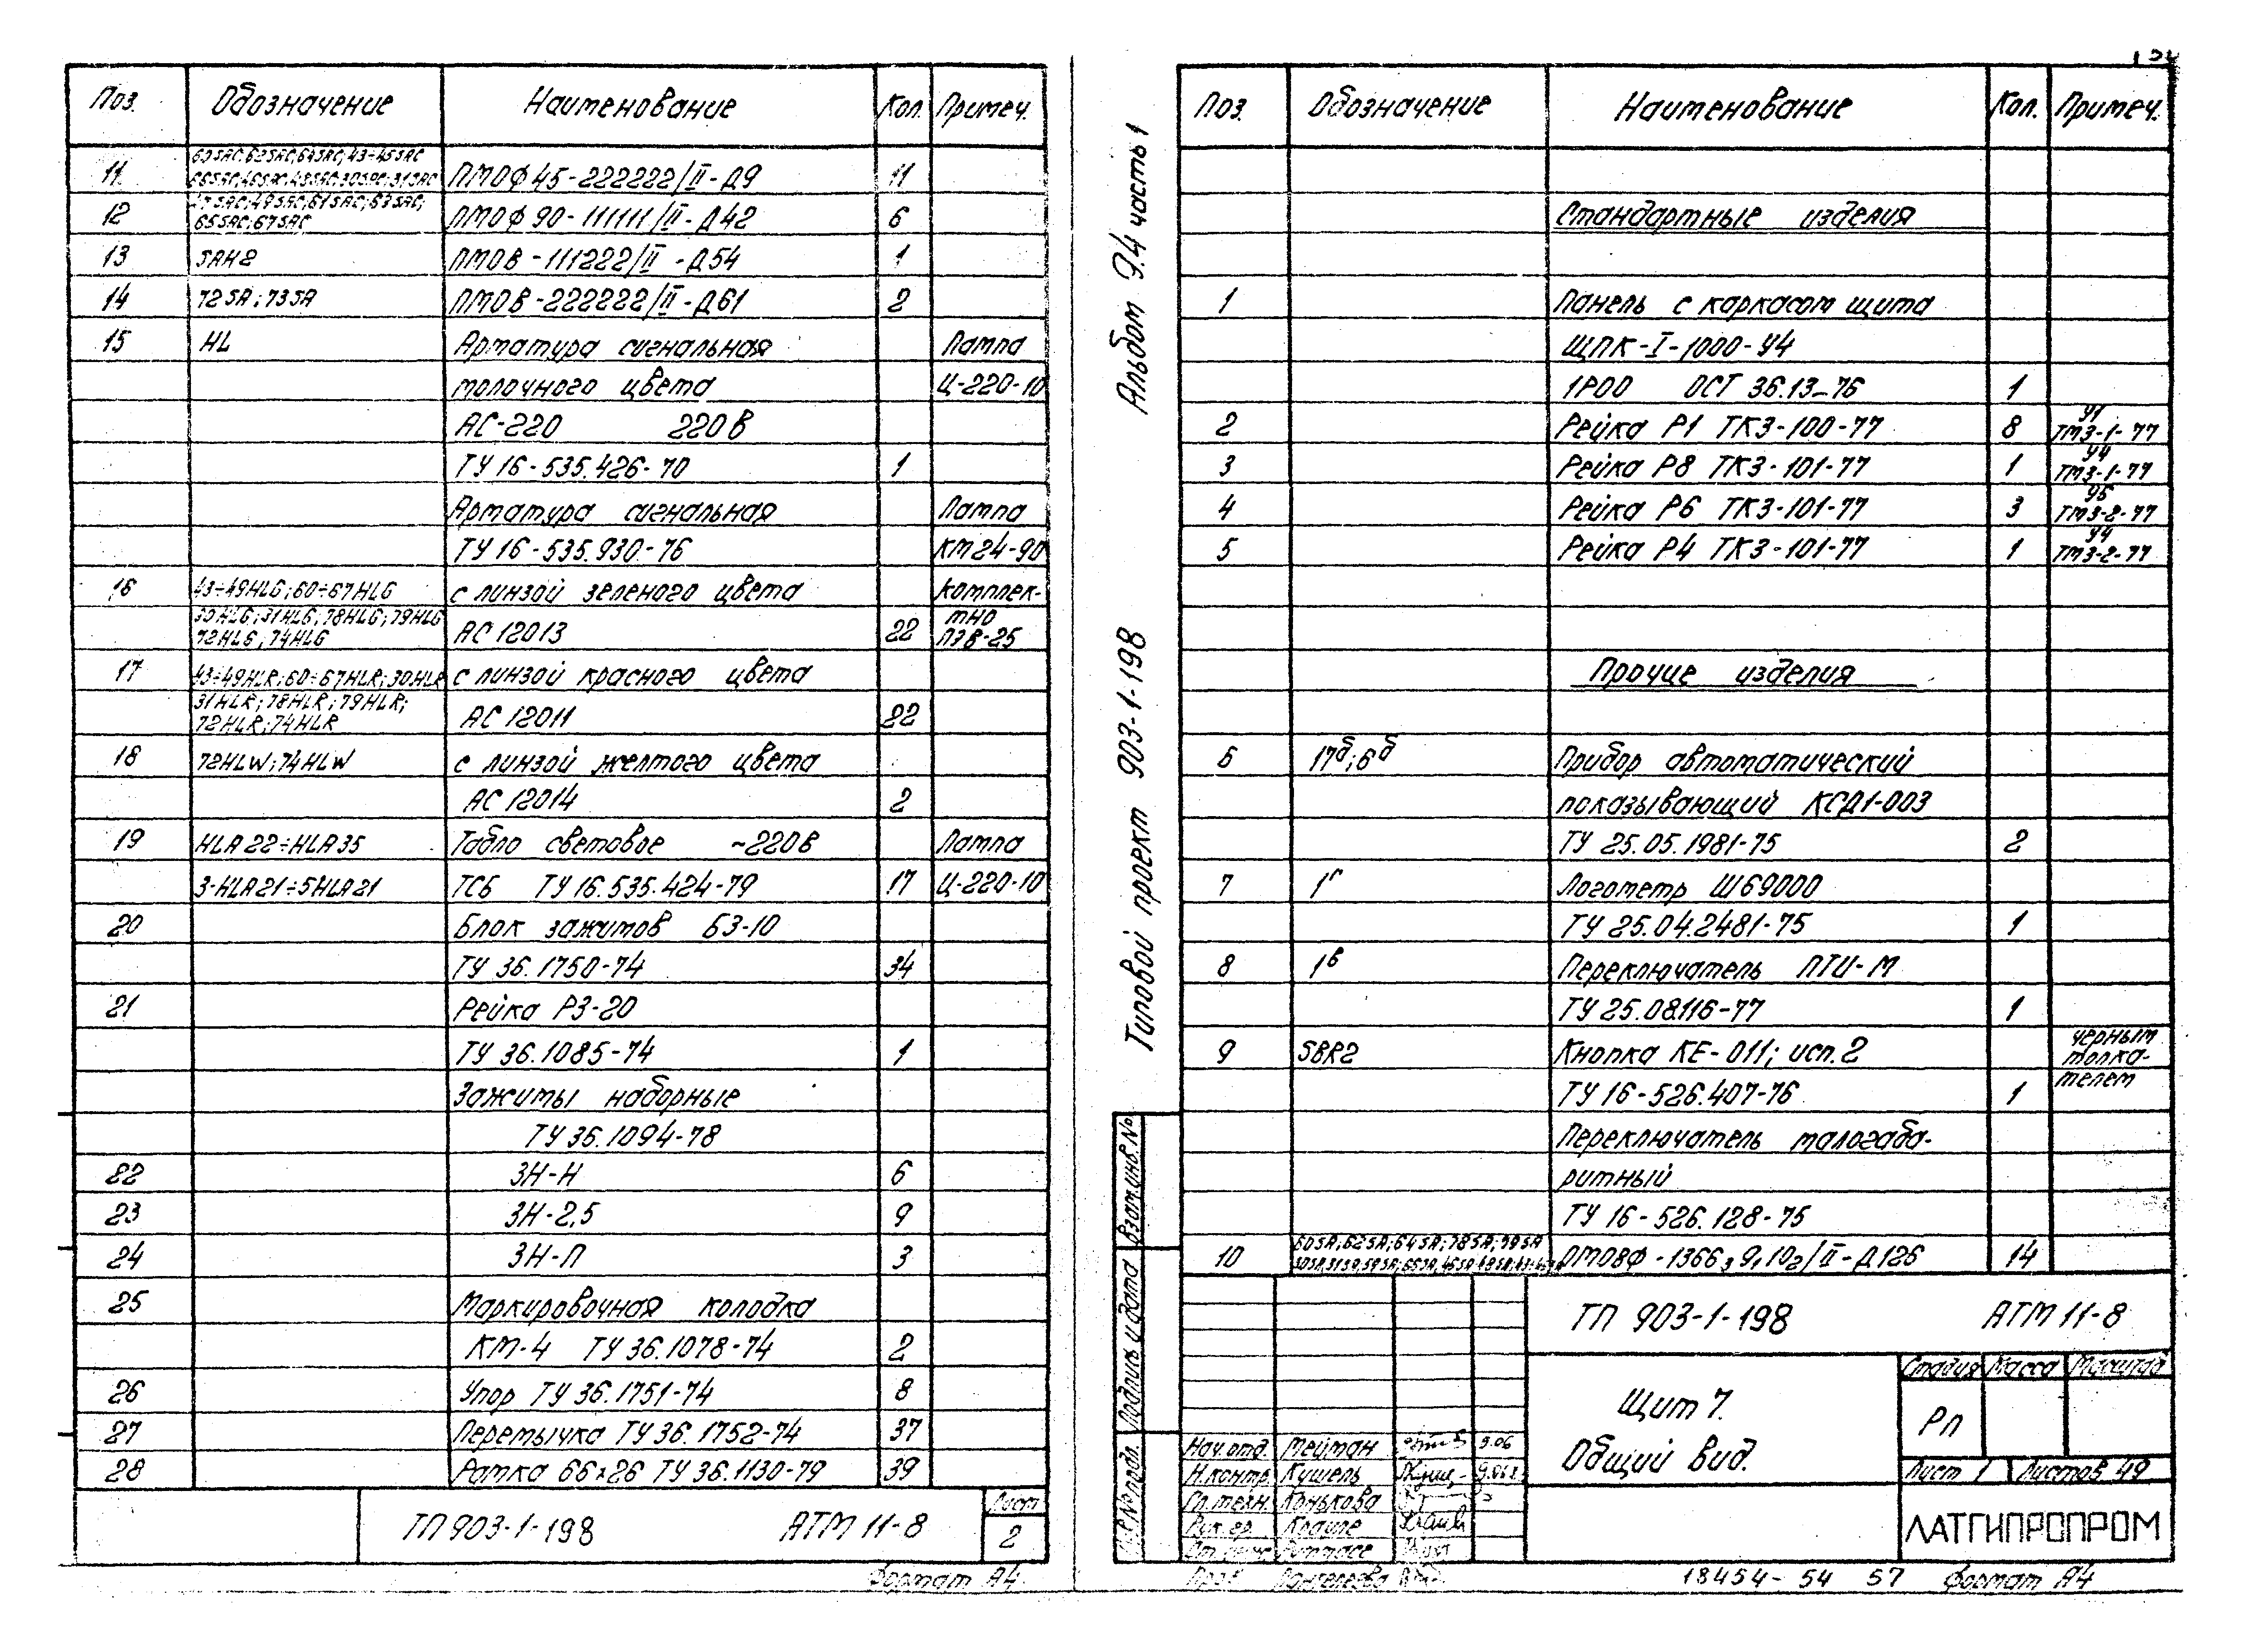 Поз. Обозначение Наименование Кол. Примеч.
11 ПМОФ45-222222/II-Д9 11
12 65SAC;67SAC ПМОФ90-111111/II-Д42 6
13 SAH2 ПМОВ-111222/II-Д54 1
14 72SA;73SA ПМОВ-222222/II-Д61 2
15 HL Арматура сигнальная Лампа
молочного цвета Ц-220-10
АС-220 220В
ТУ 16-535.426-70 1
Арматура сигнальная Лампа
ТУ 16-535.930-76 КМ24-90
16 43÷49HLG;60÷67HLG с линзой зеленого цвета комплек-
30HLG;31HLG;78HLG;79HLG тно
72HLG;74HLG АС12013 22 ПЭВ-25
17 43÷49HLR;60÷67HLR;30HLR с линзой красного цвета
31HLR;78HLR;79HLR;
72HLR;74HLR АС12011 22
18 72HLW;74HLW с линзой желтого цвета
АС12014 2
19 HLA22÷HLA35 Табло световое ~220В Лампа
3-HLA21÷5HLA21 ТСБ ТУ 16.535.424-79 17 Ц-220-10
20 Блок зажимов БЗ-10
ТУ 36.1750-74 34
21 Рейка РЗ-20
ТУ 36.1085-74 1
Зажимы наборные
ТУ 36.1094-78
22 ЗН-Н 6
23 ЗН-2,5 9
24 ЗН-П 3
25 Маркировочная колодка
КМ-4 ТУ 36.1078-74 2
26 Упор ТУ 36.1751-74 8
27 Перемычка ТУ 36.1752-74 37
28 Рамка 66х26 ТУ 36.1130-79 39
ТП 903-1-198 АТМ 11-8 Лист
2
Формат А4
Альбом 9.4 часть 1
Типовой проект 903-1-198
Взам.инв.№
Подпись и дата
Поз. Обозначение Наименование Кол. Примеч.
Стандартные изделия
1 Панель с каркасом щита
ЩПК-I-1000-У4
1Р00 ОСТ 36.13-76 1
2 Рейка Р1 ТК3-100-77 8 У1
ТМ3-1-77
3 Рейка Р8 ТК3-101-77 1 У4
ТМ3-1-77
4 Рейка Р6 ТК3-101-77 3 У5
ТМ3-2-77
5 Рейка Р4 ТК3-101-77 1 У4
ТМ3-2-77
Прочие изделия
6 17б;6б Прибор автоматический
показывающий КСД1-003
ТУ 25.05.1981-75 2
7 1г Логометр Ш69000
ТУ 25.04.2481-75 1
8 1в Переключатель ПТИ-М
ТУ 25.08.116-77 1
9 SBR2 Кнопка КЕ-011; исп.2 черным
толка-
ТУ 16-526.407-76 1 телем
Переключатель малогаба-
ритный
ТУ 16-526.128-75
10 60SA;62SA;64SA;78SA;79SA ПМОВФ-1366,9,10 2/II-Д126 14
ТП 903-1-198 АТМ 11-8
Щит 7.
Общий вид.
Стадия Масса Масштаб
РП
Лист 1 Листов 49
ЛАТГИПРОПРОМ
Нач.отд. Мейман 9.06
Н.контр. Кушель
Гл.техн. Конькова
Рук.гр. Крауле
18454-54 57 Формат А4